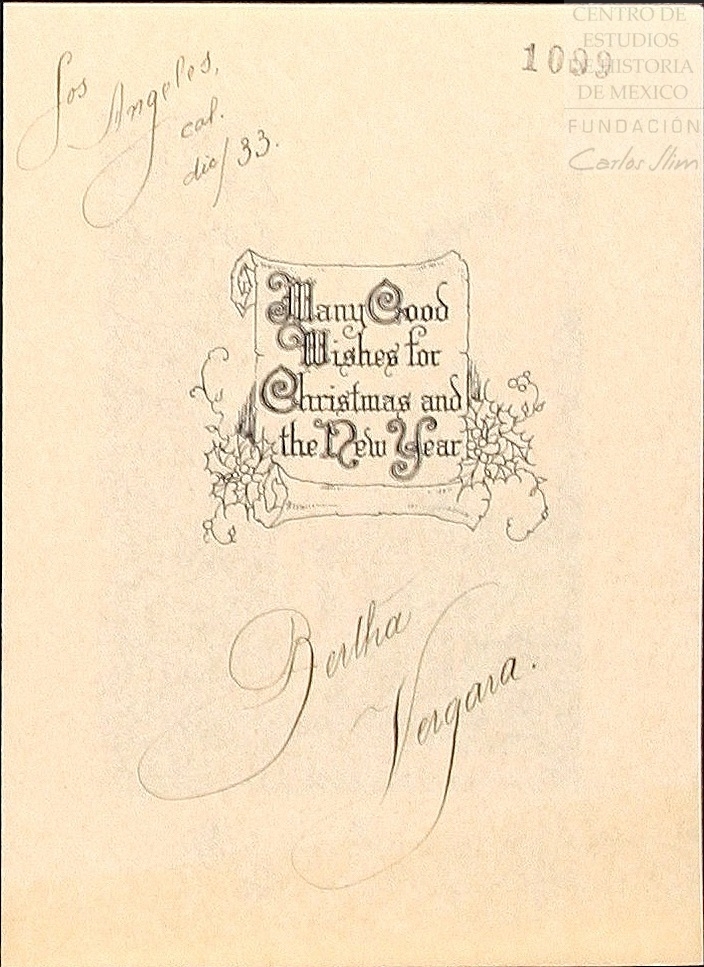 Los Angeles,
cal.
dic/33.
CENTRO DE
ESTUDIOS
DE HISTORIA
DE MEXICO
FUNDACIÓN
Carlos Slim
Many Good
Wishes for
Christmas and
the New Year
Bertha
Vergara.